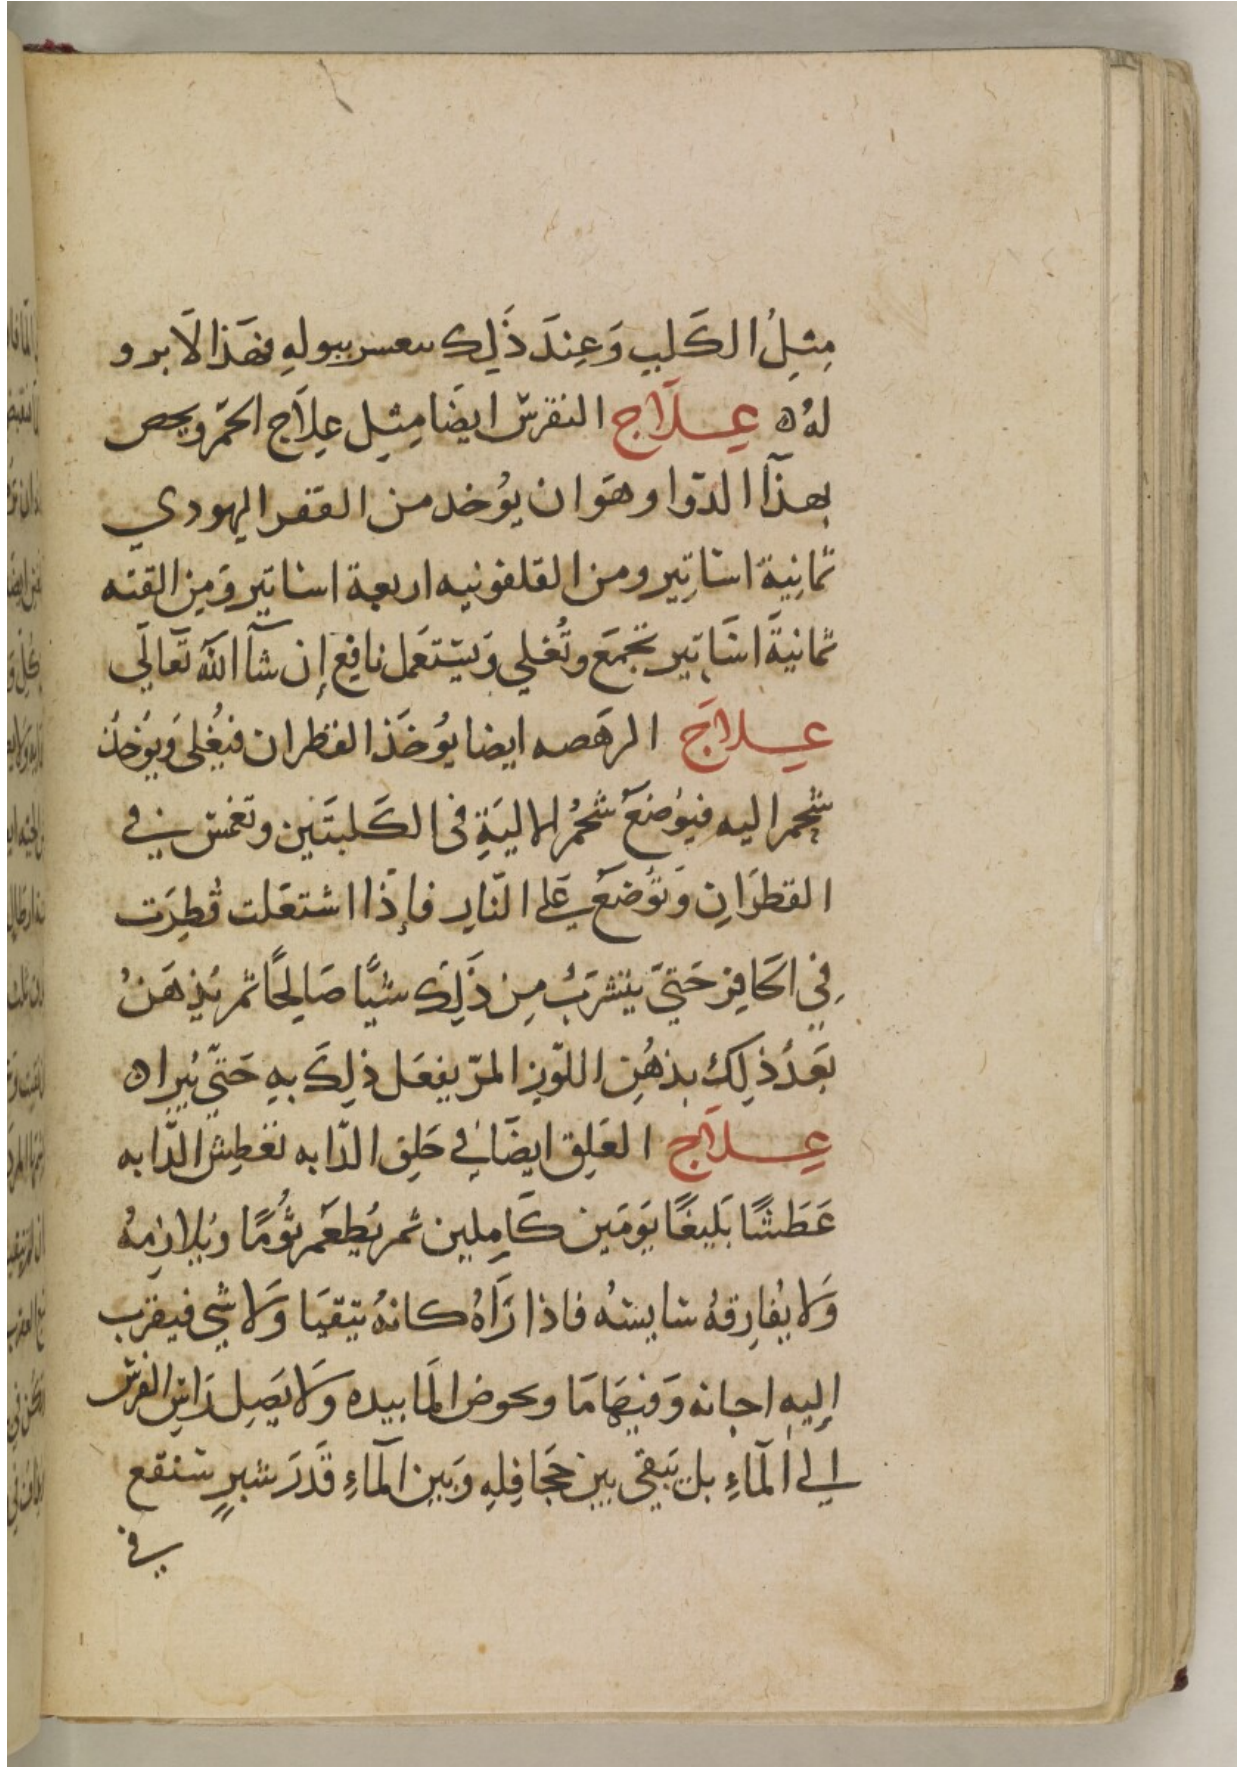 مِثلُ الكَلبِ وَعِندَ ذَلِك يتعسر ببولهِ فهَذا لَا برو
لهُ ه عِلَاج النقرش ايضَا مِثِل عِلَاج الحَمَر ويخص
بهذَا الدّوا وهَوَ ان يوُخد من القفر اليهودي
ثمانِية اساتِير ومن القلفونيه اربعة اساتير وَمِن القنه
ثمانيةَ اسَاتير تجمَع وتُغلي وَيستعَمل نافِع إن شآ اللّه تَعالَي
عِلاَج الرهَصه ايضا يوُخَذ القطران فيُغلى وَيوُخذُ
شحمر اليه فيوُضَع شحمُ الاليَةِ في الكَلبتَين وتغمس في
القطرَانِ وَتوُضَع عَلى النّارِ فإذَا اشتعَلت قُطِرَت
فِي الحَافِر حَتيَ يتشرَبُ مِن ذَلِكَ شيًا صَالِحًا ثم يُدهَنُ
بَعدَ ذلِكَ بدهُنِ اللّوز المرّ يفعَل ذلِكَ بهِ حَتّي يُبراه
عِلَاج العَلِق ايضَا في حَلقِ الدّابه تعَطِش الدّابه
عَطَشًا بَليغًا يَومَين كَامِلين ثمر يُطعَمر ثُومًا وَيُلازِمهُ
وَلا يُفارِقهُ سايسهُ فاذا رَاهُ كانهُ يتقيَا وَلا شي فيقرب
إليهِ اجانه وَفيهَا مَا ويخوض الَما بيده وَلا يَصِل رَاسِ الفرَس
الي الَماءِ بل يَبقي بين حجَافِلِهِ وَبَين الَماءِ قَدَرَ شبرٍ ستنقع
في